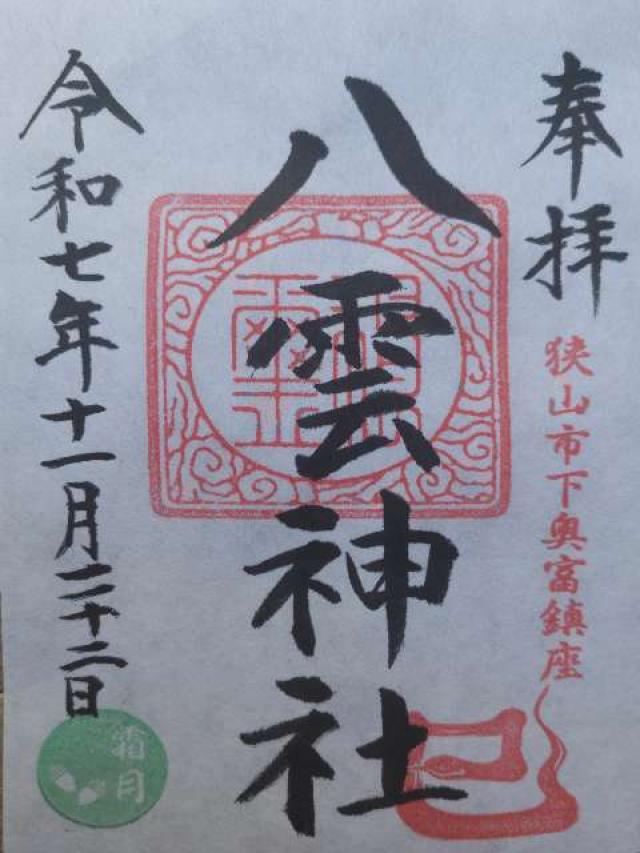 奉拝
狭山市下奥富鎮座
八雲神社
令和七年十一月二十二日
霜月